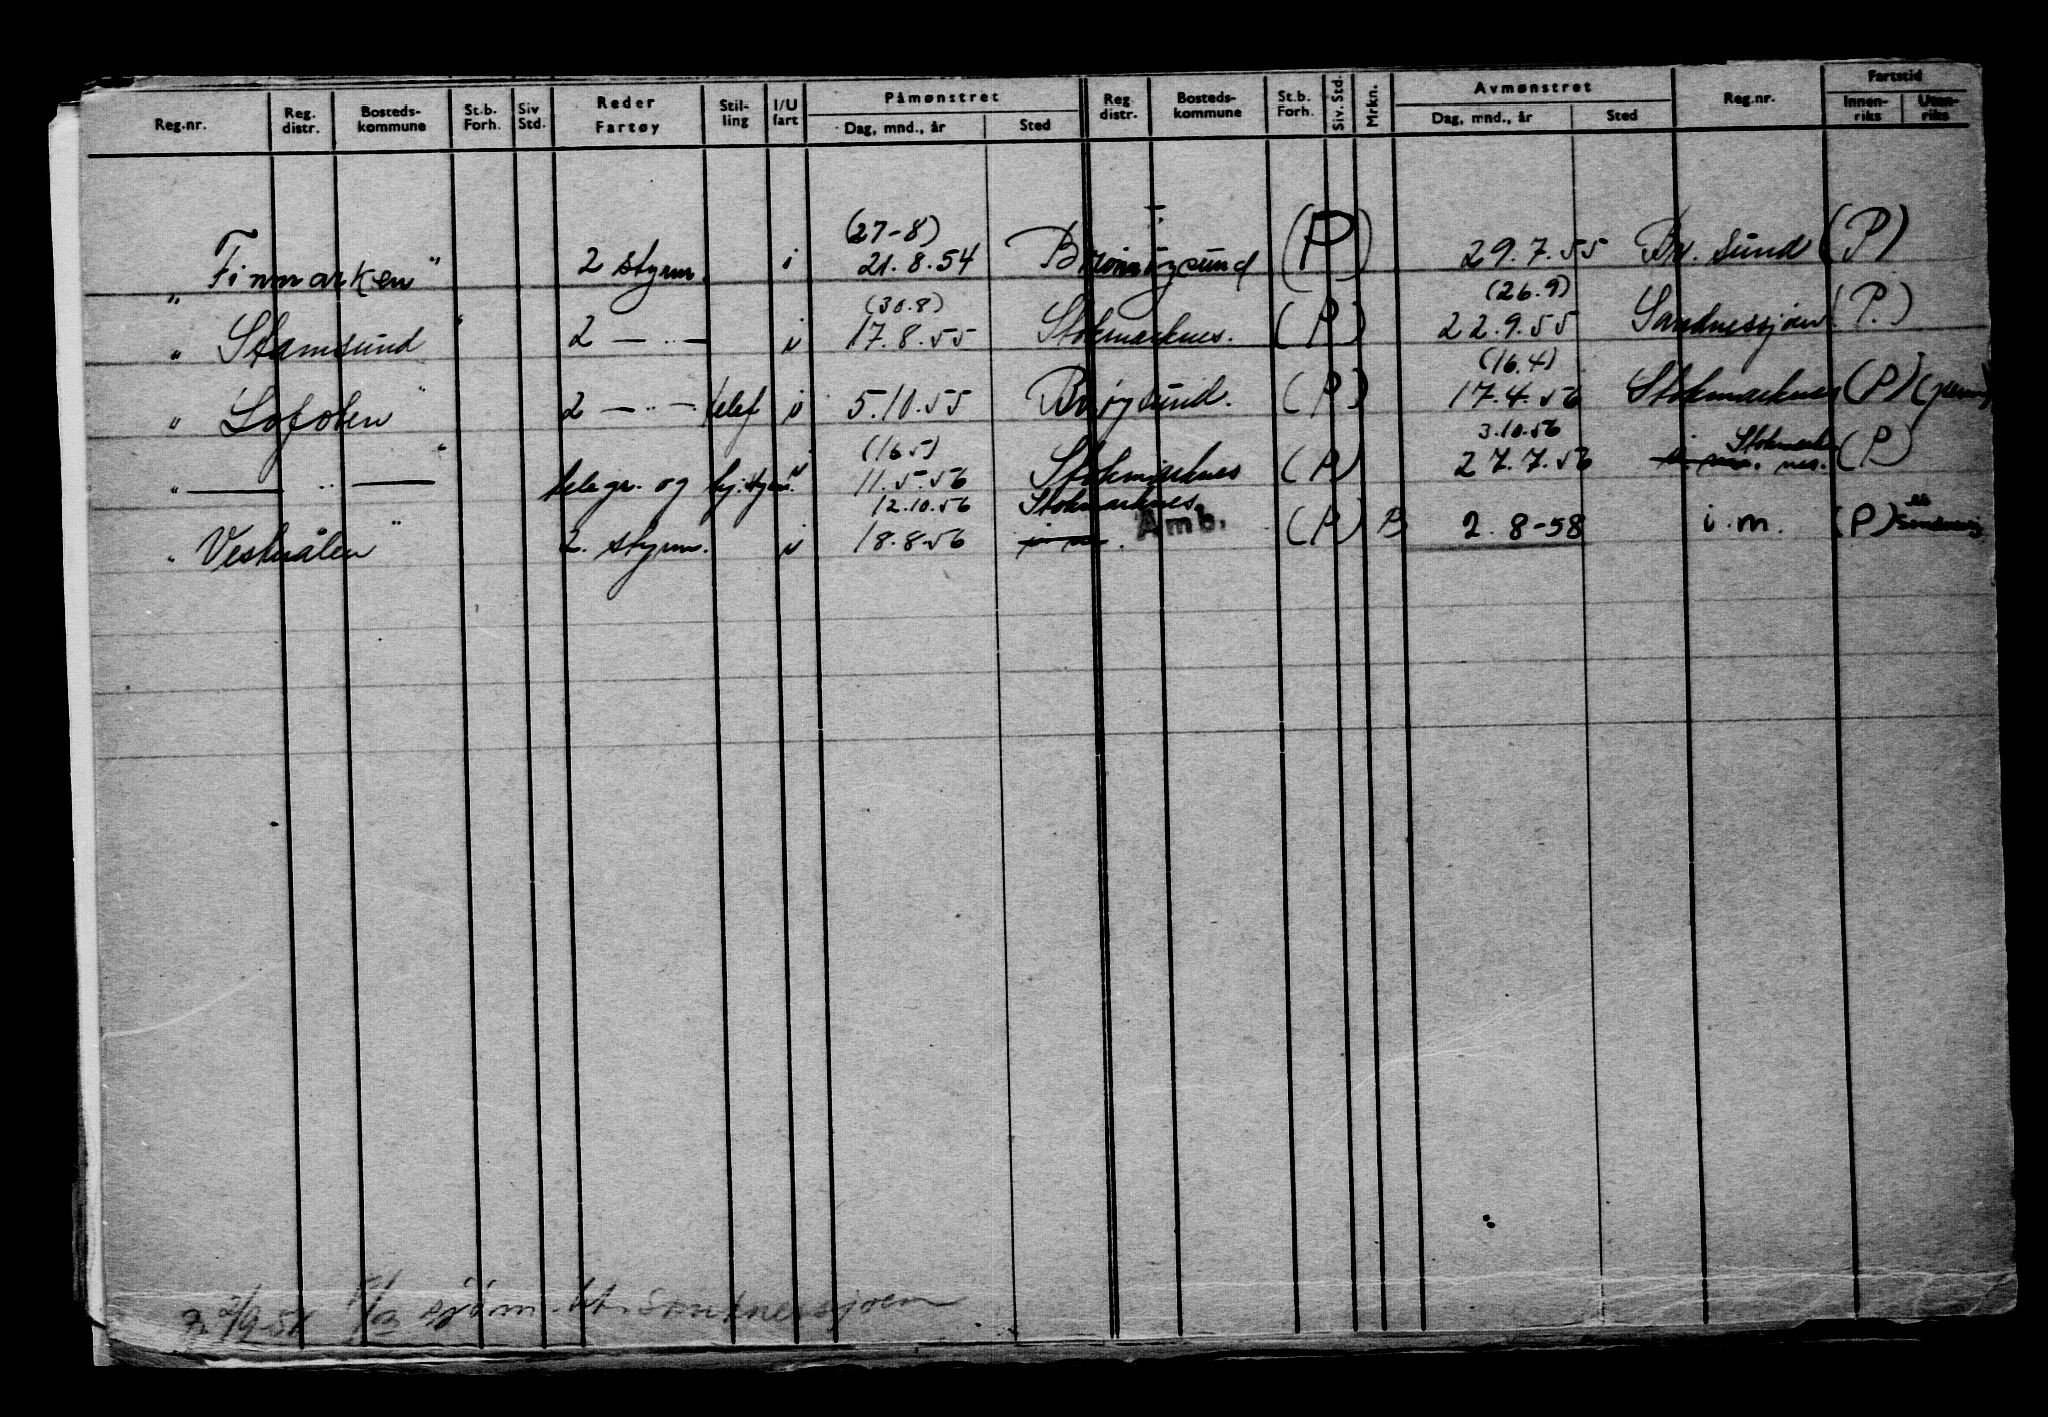 Reg.nr. Reg. distr. Bosteds-kommune St.b. Forh. Siv Std. Reder Fartøy Stil-ling I/U fart Påmønstret Dag, mnd., år Sted Reg distr. Bosteds-kommune St.b. Forh. Siv. Std. Mrkn. Avmønstret Dag, mnd., år Sted Reg.nr. Fartstid Innen-riks Uten-riks
(27-8)
„ Finnmarken" 2 styrm. i 21.8.54 Brønnøysund (P) 29.7.55 Br. sund (P)
(30.8) (26.9)
„ Stamsund " 2 — .. — i 17.8.55 Stokmarknes. (P) 22.9.55 Sandnessjøen (P.)
(16.4)
„ Lofoten " 2 — .. — telef i 5.10.55 Brøysund. (P) 17.4.56 Stokmarknes (P)
(16.5) 3.10.56 Stokmark
„ — .. — " telegr. og 11.5.56 Stokmarknes (P) 27.7.56 nes. (P)
12.10.56 Stokmarknes
„ Vesteraalen " 2. styrm. i 18.8.56 i m. Amb. (P) B 2.8-58 i.m. (P)
2/9.54 sjøm Sandnessjoen